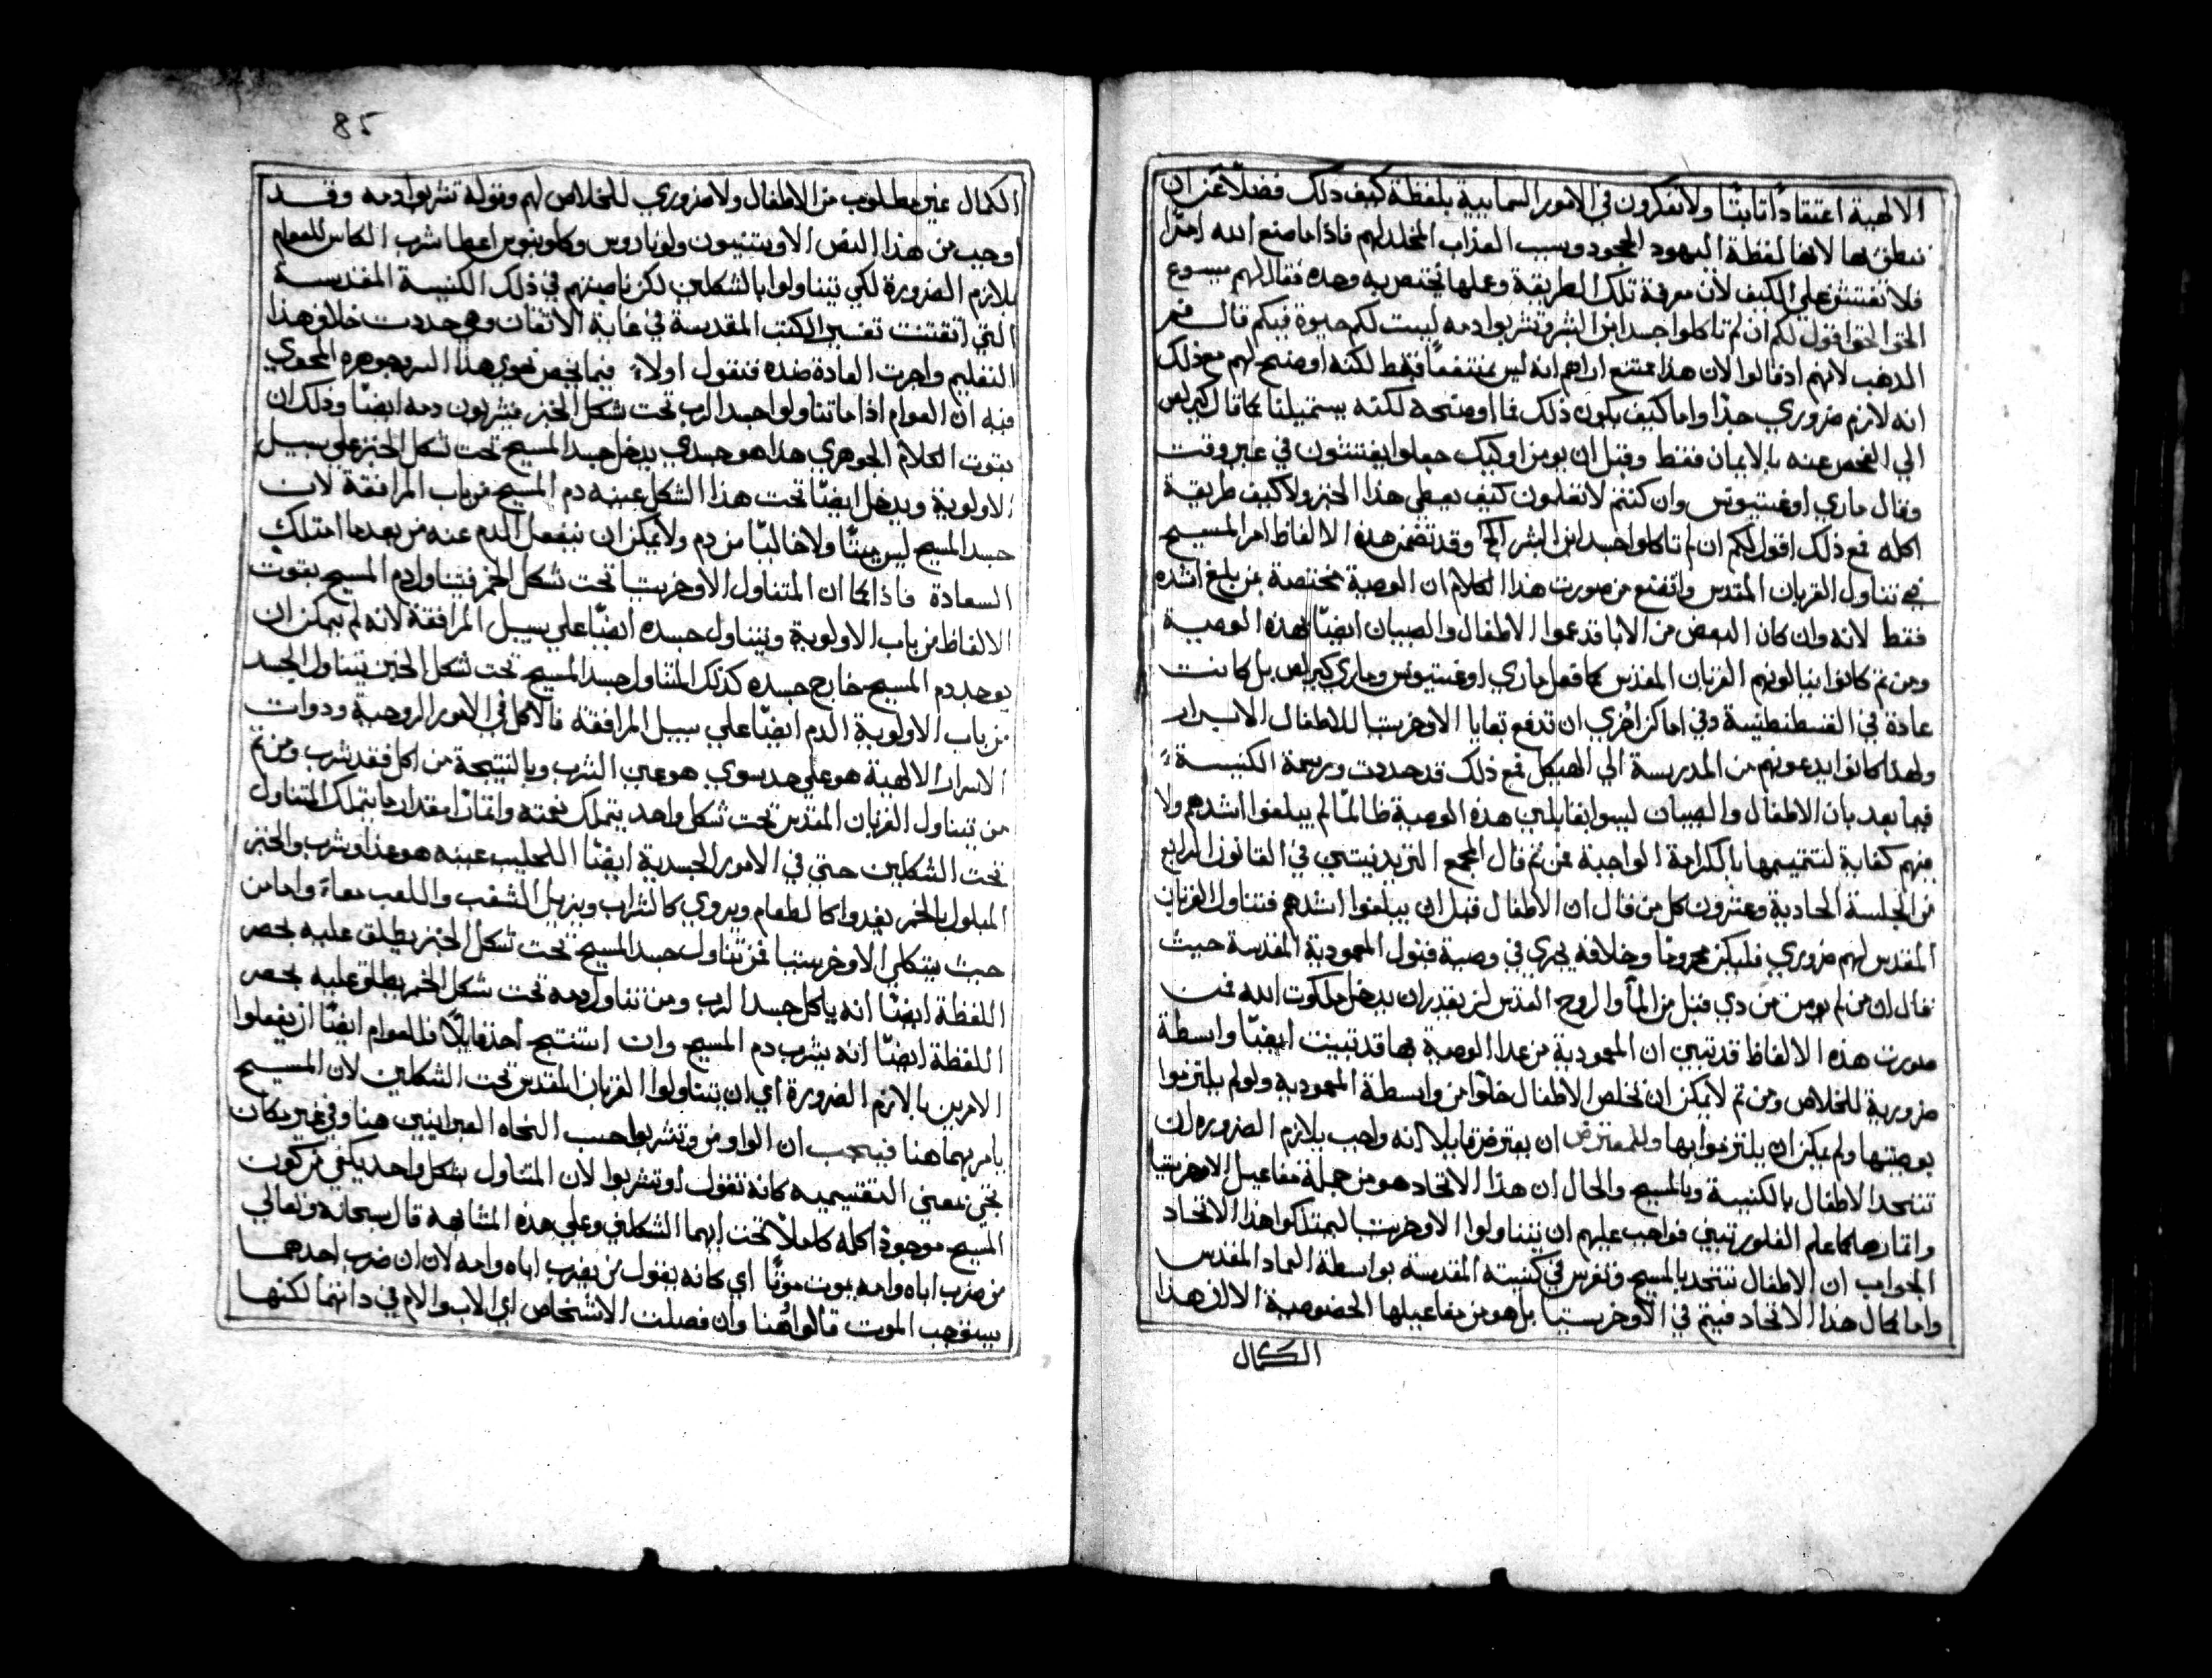 الالهية اعتقاداً ثابتًا ولا تفكرون في الامور السمايية بلفظة كيف ذلك فضلًا عن ان
ننطق بها لانها لفظة اليهود الجحود وسبب العذاب المخلد لهم فاذا ما صنع الله امرًا
فلا تفتش علي الكيف لان معرفة تلك الطريقة وعلمها يختص به وحده فقال لهم يسوع
الحق الحق اقول لكم ان لم تاكلوا جسد ابن البشر وتشربوا دمه ليست لكم حيوة فيكم قال فم
الذهب لانهم اد قالوا الان هذا ممتنع اراهم انه ليس ممتنعًا فقط لكنه اوضح لهم مع ذلك
انه لازم ضروري جدًا واما كيف يكون ذلك فما اوضحه لكنه يستميلنا كما قال كيرلس
الي الفحص عنه بالايمان فقط وقبل ان يومن اوليك جعلوا يفتشون في غير وقت
وقال ماري اوغستينوس وان كنتم لا تعلمون كيف يعطي هذا الخبز ولا كيف طريقة
اكله فمع ذلك اقول لكم ان لم تاكلوا جسد ابن البشر الخ وقد تضمن هذه الالفاظ امر المسيح
في تناول القربان المقدس واتضع من صورت هذا الكلام ان الوصية مختصة بمن بلغ اشده
فقط لانه وان كان البعض من الابا قد عموا الاطفال والصبيان ايضًا بهذه الوصية
ومن ثم كانوا يناولونهم القربان المقدس كما فعل ماري اوغستينوس وماري كيرلس بل كانت
عادة في القسطنطينية وفي اماكن اخري ان تدفع بقايا الاوخرستيا للاطفال الابرار
ولهذا كانوا يدعونهم من المدرسة الي الهيكل فمع ذلك قد حددت ورسمة الكنيسة
فيما بعد بان الاطفال والصبيان ليسوا بقابلين هذه الوصية طالما لم يبلغوا اشدهم ولا
فيهم كفاية لتتميمها بالكرامة الواجبة فمن ثم قال المجمع التريدنتيني في القانون الرابع
من الجلسة الحادية وعشرون كل من قال ان الاطفال قبل ان يبلغوا اشدهم فتناول القربان
المقدس لهم ضروري فليكن محرومًا وخلافه يجري في وصية قبول المعمودية المقدسة حيث
قال ان من لم يومن من دي قبل من الما والروح القدس لن يقدر ان يدخل ملكوت الله فمن
صورت هذه الالفاظ قد تبين ان المعمودية من عدا الوصية بها قد تبينت ايضًا واسطة
ضرورية للخلاص ومن ثم لا يمكن ان تخلص الاطفال خلوًا من واسطة المعمودية ولو لم يلتزموا
بوصيتها ولم يمكن ان يلتزموا بها وللمعترض ان يعترض قايلا انه واجب بلازم الضروره ان
تتحد الاطفال بالكنيسة وبالمسيح والحال ان هذا الاتحاد هو من جملة مفاعيل الاوخرستيا
واثمارها كما علم الفلورنتيني فواجب عليهم ان يتناولوا الاوخرستيا ليمتلكوا هذا الاتحاد
الجواب ان الاطفال تتحد بالمسيح وتغرس في كنيسته المقدسة بواسطة العماد المقدس
واما كمال هذا الاتحاد فيتم في الاوخرستيا بل هو من مفاعيلها الخصوصية الا ان هذا
الكمال
85
الكمال غير مطلوب من الاطفال ولا ضروري للخلاص لهم وقوله تشربوا دمه وقد
اوجب من هذا النص الاوسّيون ولوباروس وكلوينوس اعطا شرب الكاس للعوام
بلازم الضرورة لكي يتناولوا بالشكلين لكن ناصبتهم في ذلك الكنيسة المقدسة
التي اتقنت تفسير الكتب المقدسة في غاية الاتقان وهي حددت خلاف هذا
التعليم واجرت العادة ضده فنقول اولاً فيما يخص نحوي هذا السر وجوهره المحوي
فيه ان العوام اذا ما تناولوا جسد الرب تحت شكل الخبز فيشربون دمه ايضًا وذلك ان
بقوت الكلام الجوهري هذا هو جسدي يدخل جسد المسيح تحت شكل الخبز علي سبيل
الاولوية ويدخل ايضًا تحت هذا الشكل عينه دم المسيح من باب المرافقة لان
جسد المسيح ليس ميتًا ولا خاليًا من دم ولا يمكن ان ينفصل الدم عنه من بعد ما امتلك
السعادة فاذًا كما ان المتناول الاوخرستيا تحت شكل الخمر فيتناول دم المسيح بقوت
الالفاظ من باب الاولوية ويتناول جسده ايضًا علي سبيل المرافقة لانه لم يمكن ان
يوجد دم المسيح خارج جسده كذلك المتناول جسد المسيح تحت شكل الخبز يتناول الجسد
من باب الاولوية الدم ايضًا علي سبيل المرافقة فالاكل في الامور الروحية ودوات
الاسرار الالهية هو علي حد سوي هو عين الشرب وبالنتيجة من اكل فقد شرب ومن ثم
من يتناول القربان المقدس تحت شكل واحد يتملك نعمته واثمارًا مقدار ما يتملك المتناول
تحت الشكلين حتي في الامور الجسدية ايضًا الحليب عينه هو غذا وشرب والخبز
المبلول بالخمر يغدوا كالطعام ويروي كالشراب ويزيل الشغب واللعب معاة واما من
حيث يتكلم الاوخرستيا فمن تناول جسد المسيح تحت شكل الخبز يطلق عليه بحصر
اللفظة ايضًا انه ياكل جسد الرب ومن تناول دمه تحت شكل الخمر يطلق عليه بحصر
اللفظة ايضًا انه يشرب دم المسيح وان استنتج احد قايلًا فللعوام ايضًا ان يفعلوا
الامرين بالازم الضرورة اي ان يتناولوا القربان المقدس تحت الشكلين لان المسيح
يامر بهما هنا فيجب ان الواو من وتشربوا حسب النحاه العبرانيين هنا وفي غير مكان
تجي بمعني التقسيميه كانه تقول او تشربوا لان المتناول بشكل واحد يكفي من كون
المسيح موجودًا كله كاملًا تحت ايهما الشكلين وعلي هذه المشابهه قال سبحانه وتعالي
من ضرب اباه وامه يموت موتًا اي كانه يقول من يضرب اباه او امه لان ان ضرب احدهما
يستوجب الموت قالوا هنا وان فصلت الاشخاص اي الاب والام في داتهما لكنها